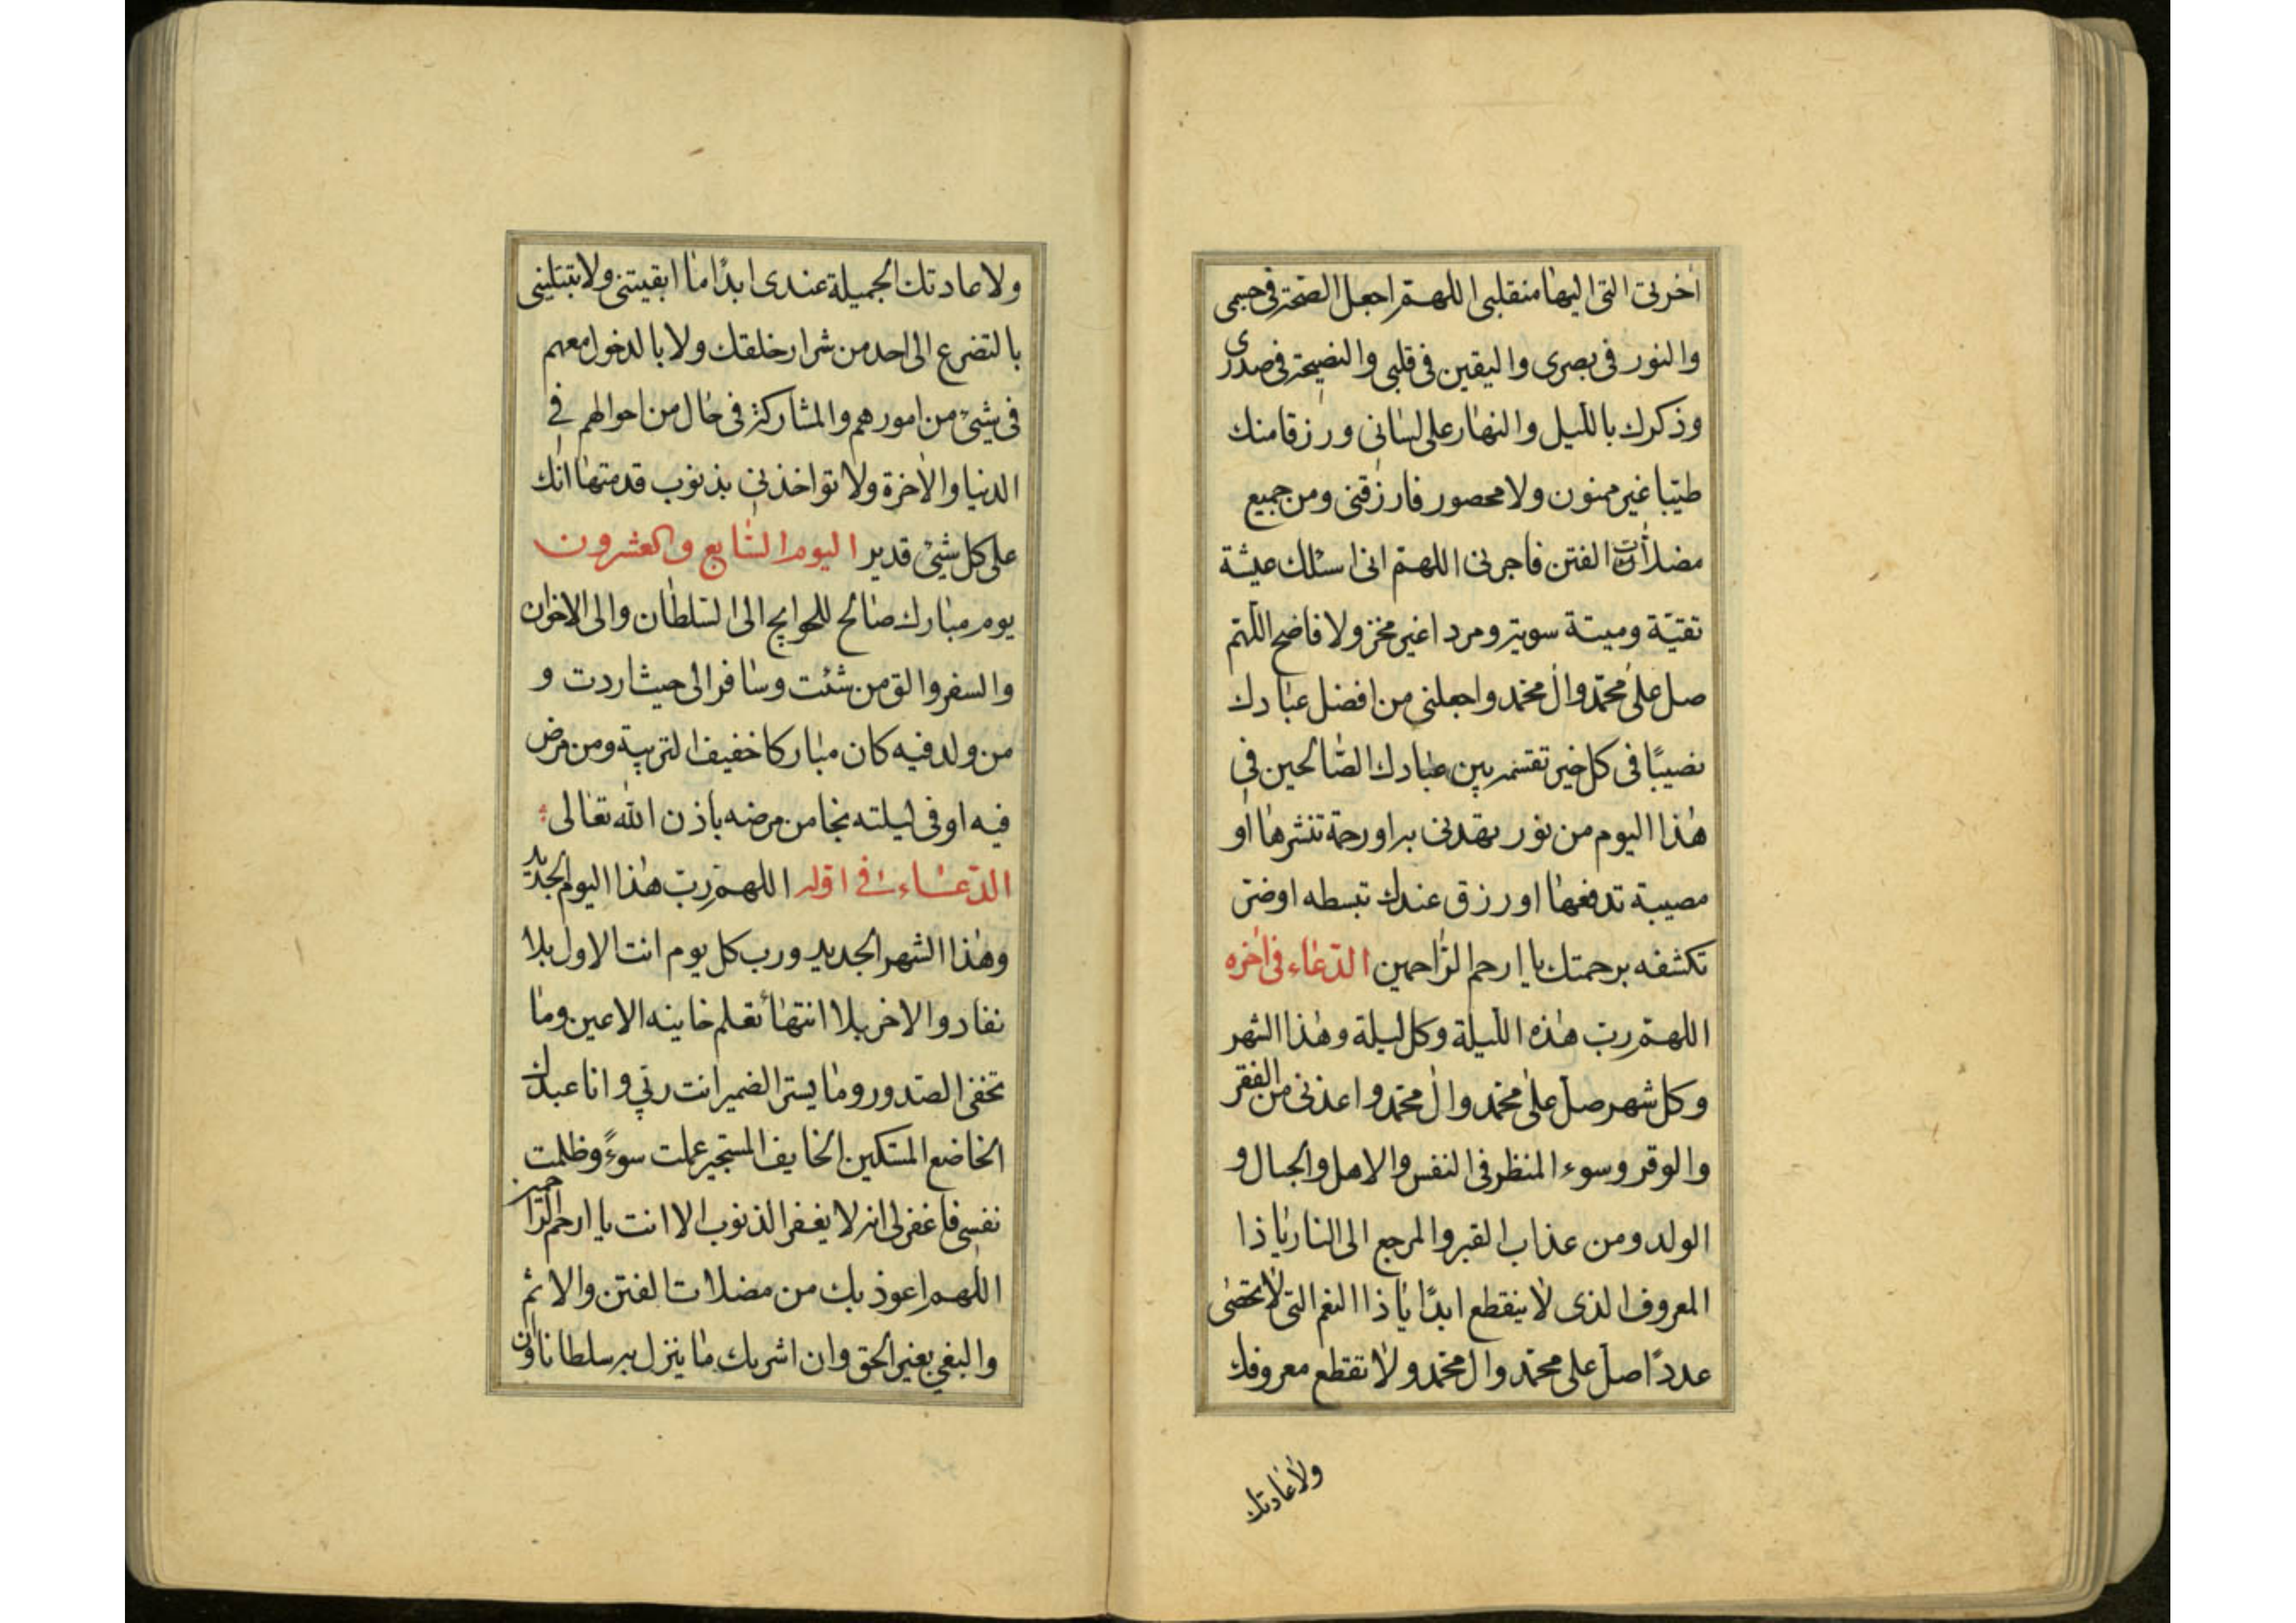 اخرتی التی الیها منقلبی اللهم اجعل الصحة فی جسمی
والنور فی بصری والیقین فی قلبی والنصیحة فی صدری
وذکرك باللیل والنهار علی لسانی ورزقا منك
طیبا غیر ممنون ولا محصور فارزقنی ومن جمیع
مضلات الفتن فاجرنی اللهم انی اسئلك عیشة
نقیة ومیتة سویة ومردا غیر مخز ولا فاضح اللهم
صل علی محمد وال محمد واجعلنی من افضل عبادك
نصیبًا فی کل خیر تقسمه بین عبادك الصالحین فی
هذا الیوم من نور تهدی به او رحمة تنشرها او
مصیبة تدفعها او رزق عندك تبسطه او ضر
تکشفه برحمتك یا ارحم الراحمین الدعاء فی اخره
اللهم رب هذه اللیلة وکل لیلة وهذا الشهر
وکل شهر صل علی محمد وال محمد واعذنی من الفقر
والوقر وسوء المنظر فی النفس والاهل والجبال و
الولد ومن عذاب القبر والمرجع الی النار یا ذا
المعروف الذی لا ینقطع ابدًا یا ذا النعم التی لا تحصی
عددًا صل علی محمد وال محمد ولا تقطع معروفك
ولا عادتك
ولا عادتك الجمیلة عندی ابدًا ما ابقیتنی ولا تبتلینی
بالتضرع الی احد من شرار خلقك ولا بالدخول معهم
فی شیئ من امورهم والمشارکة فی حال من احوالهم فی
الدنیا والاخرة ولا تواخذنی بذنوب قدمتها انك
علی کل شیئ قدیر الیوم السابع والعشرون
یوم مبارك صالح للحوایج الی السلطان والی الاخوان
والسفر والق من شئت وسافر الی حیث اردت و
من ولد فیه کان مبارکا خفیف التربیة ومن مرض
فیه او فی لیلته نجا من مرضه باذن الله تعالی
الدعاء فی اوله اللهم رب هذا الیوم الجدید
وهذا الشهر الجدید ورب کل یوم انت الاول بلا
نفاد والاخر بلا انتهاء تعلم خاینه الاعین وما
تخفی الصدور وما یستر الضمیر انت ربی وانا عبدك
الخاضع المستکین الخایف المستجیر عملت سوءً وظلمت
نفسی فاغفر لی انه لا یغفر الذنوب الا انت یا ارحم الراحمین
اللهم اعوذ بك من مضلات الفتن والاثم
والبغی بغیر الحق وان اشرك بك ما ینزل به سلطانا وان